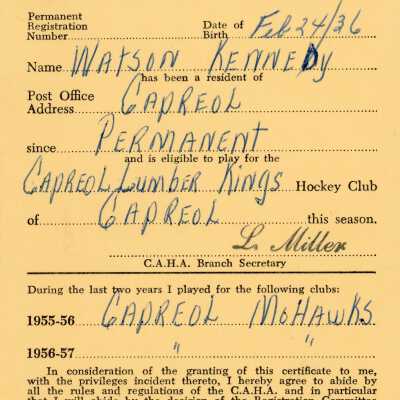 Permanent
Registration
Number
Date of
Birth Feb 24/36
Name WATSON KENNEDY
has been a resident of
Post Office
Address CAPREOL
since PERMANENT
and is eligible to play for the
CAPREOL LUMBER KINGS Hockey Club
of CAPREOL this season.
L. Miller
C.A.H.A. Branch Secretary
During the last two years I played for the following clubs:
1955-56 CAPREOL MOHAWKS
1956-57 " "
In consideration of the granting of this certificate to me,
with the privileges incident thereto, I hereby agree to abide by
all the rules and regulations of the C.A.H.A. and in particular
that I will abide by the decision of the Registration Committee